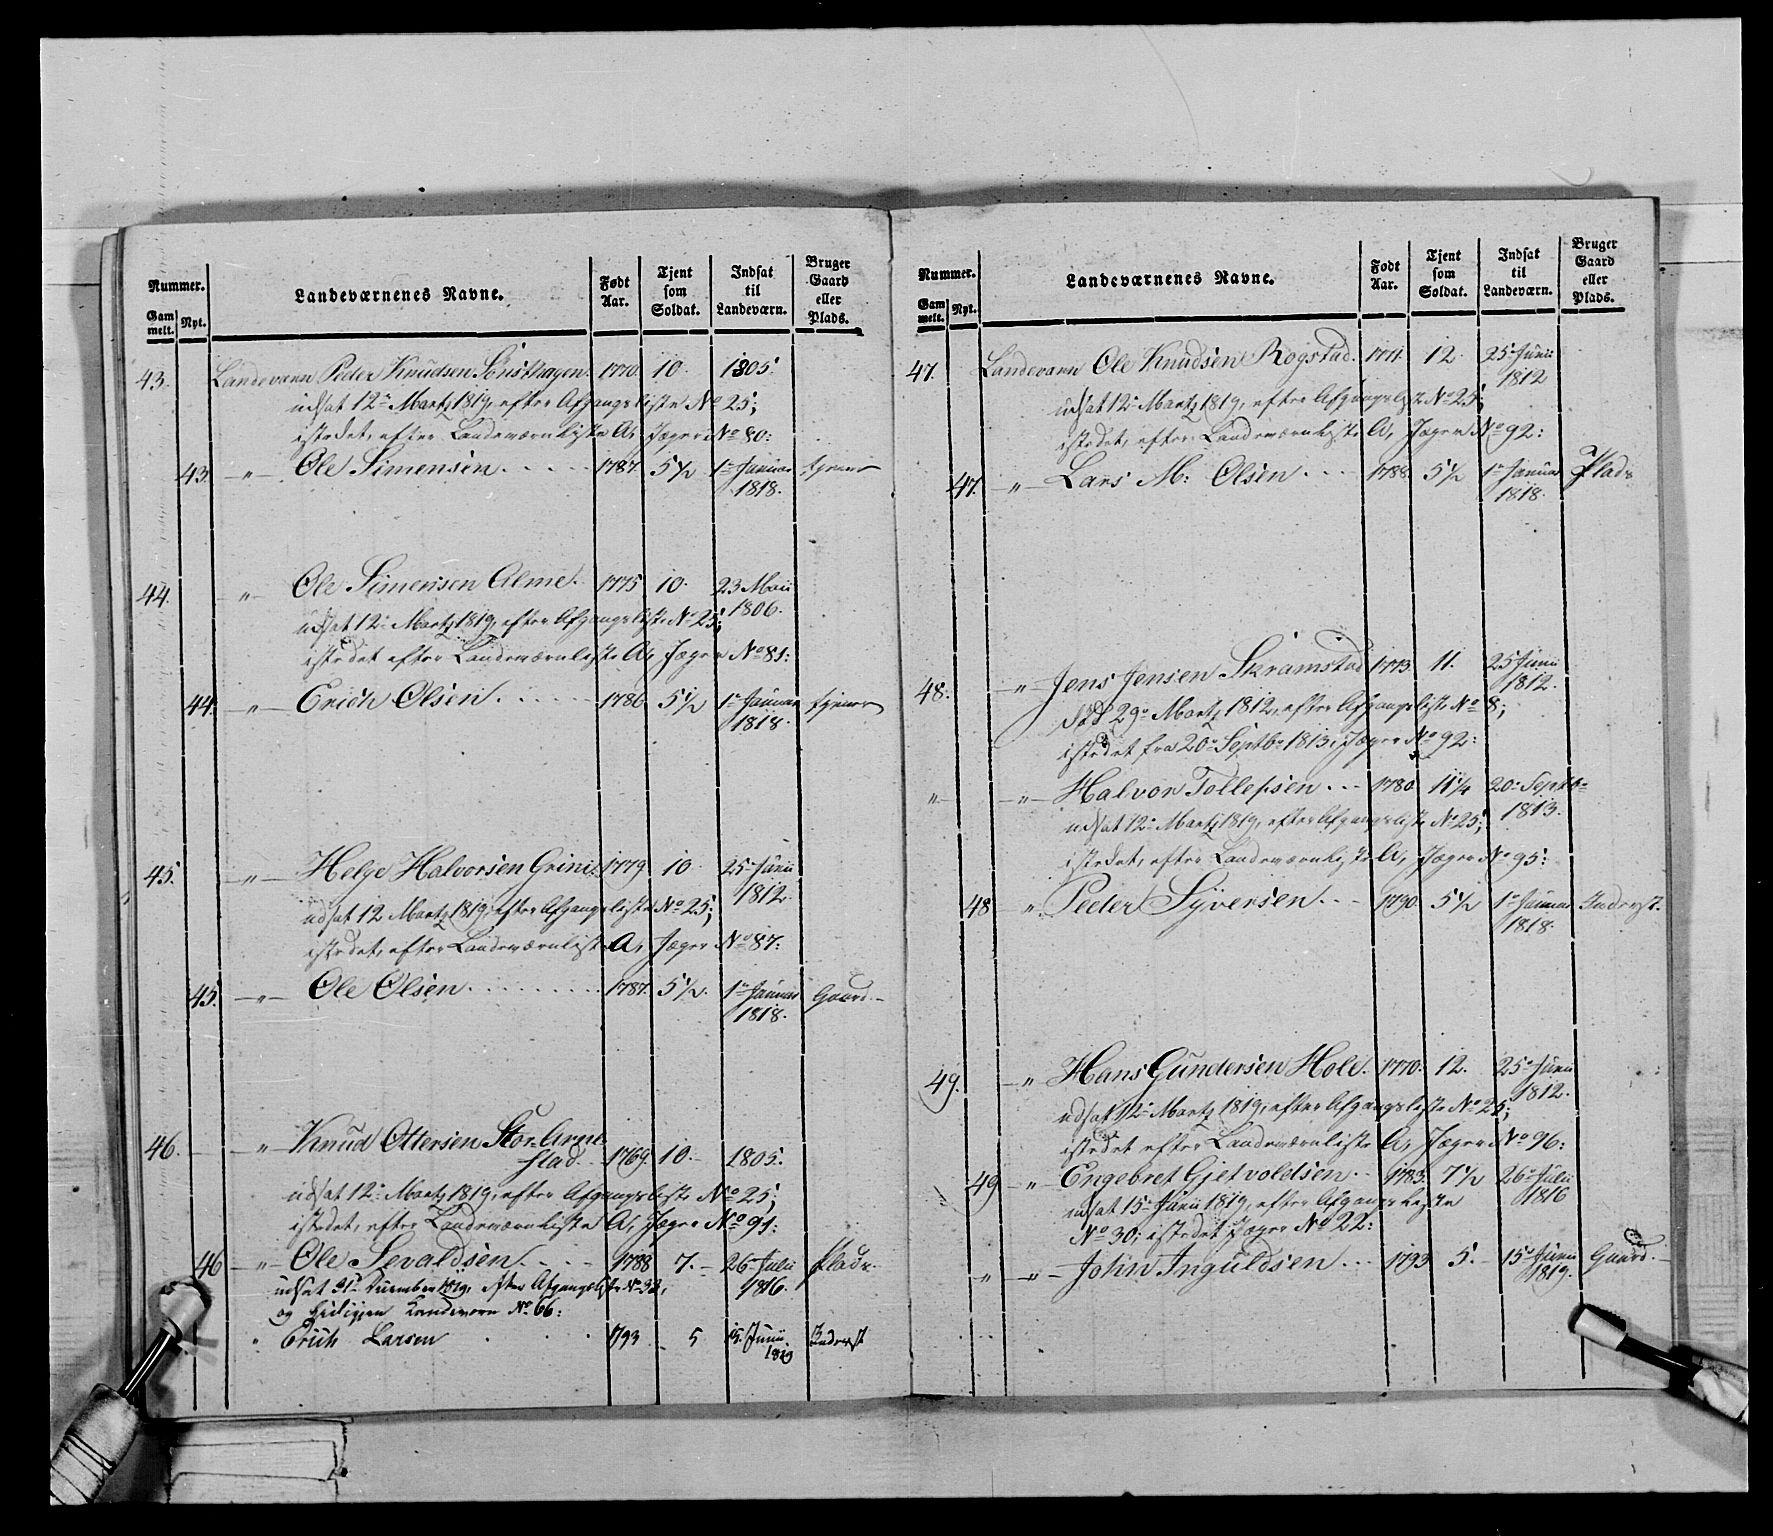 Nummer. Landeværnenes Navne. Født Aar. Tjent som Soldat. Indsat til Landeværn. Bruger Gaard eller Plads.
Gam melt. Nyt.
43. Landeværn Peder Knudsen Sønsthagen. 1770. 10. 1805.
udsat 12te Martz 1819, efter Afgangsliste No 25;
istedet, efter Landeværnliste A, Jæger No 80:
43. -"- Ole Simensen. . . . . 1787. 5 1/2 1te Januar tjener
1818.
44. " Ole Simensen Alme. 1775 10. 23 Maii
1806.
udsat 12te Martz 1819, efter Afgangsliste No 25;
istedet efter Landeværnliste A, Jæger No 81:
44. -"- Erich Olsen. . . . . 1786 5 1/2 1te Januar tjener
1818.
45. -"- Helge Halvorsen Grini. 1779. 10 25te Junii
1812.
udsat 12 Martz 1819, efter Afgangsliste No 25;
istedet, efter Landeværnliste A, Jæger No 87:
45. -"- Ole Olsen. . . . . . . . 1787. 5 1/2. 1te Januar Gaard.
1818.
46. -"- Knud Ottersen Stor-Arne-
stad. 1769. 10. 1805.
udsat 12te Martz 1819, efter Afgangsliste No 25;
istedet, efter Landeværnliste A, Jæger No 91:
46 -"- Ole Sevaldsen. . . . 1788 7. 26te Julii Plads.
1816.
udsat 31te December 1819, efter Afgangsliste No 32,
og Landeværn No 66:
" Erich Larsen . . . 1793 5 15. Junii Inderst
1819
Nummer. Landeværnenes Navne. Født Aar. Tjent som Soldat. Indsat til Landeværn. Bruger Gaard eller Plads.
Gam melt. Nyt.
47. Landeværn Ole Knudsen Rogstad. 1771. 12. 25te Junii
1812
udsat 12te Martz 1819, efter Afgangsliste No 25;
istedet, efter Landeværnliste A, Jæger No 92:
47. -"- Lars M: Olsen . . . 1788. 5 1/2 1te Januar Plads
1818.
48. -"- Jens Jensen Skramstad 1773. 11. 25 Junii
1812.
død 29de Martz 1812, efter Afgangsliste No 8;
istedet fra 20de Septbr 1813, Jæger No 92:
" -"- Halvor Tollefsen . . . 1780. 11 1/4 20de Septbr
1813.
udsat 12te Martz 1819, efter Afgangsliste No 25;
istedet, efter Landeværnliste A, Jæger No 95:
48 -"- Peder Syversen. . . 1790. 5 1/2 1te Januar Inderst.
1818.
49. -"- Hans Gundersen Hole. 1770. 12. 25te Junii
1812.
udsat 12te Martz 1819, efter Afgangsliste No 25;
istedet efter Landeværnliste A, Jæger No 96:
49 -"- Engebret Gjetvoldsen . . 1783. 7 1/2 26te Julii
1816
udsat 15te Junii 1819, efter Afgangsliste
No 30; istedet Jæger No 22:
" -"- John Inguldsen . . . 1793 5. 15de Junii Gaard.
1819.